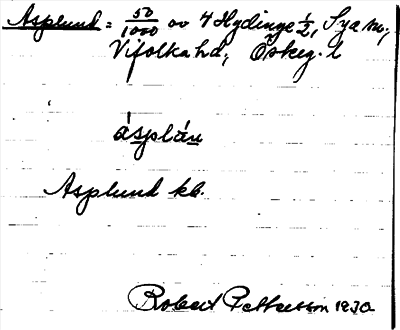 Asplund = 50/1000 av 4 Hydinge 1/2, Sya sn;
Vifolka hd; Östeg. l
ásplán
Asplund kb.
Robert Pettersson 1930